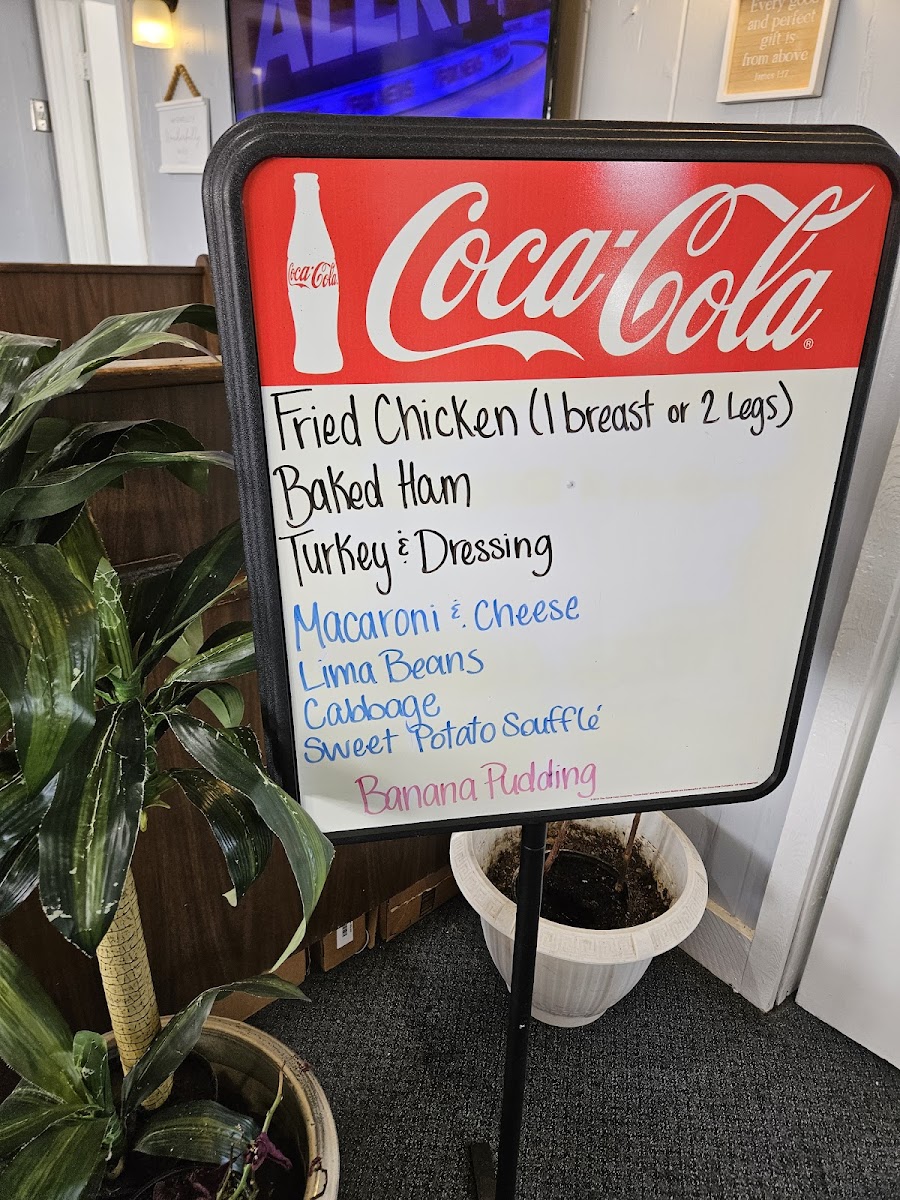 ALERT
FOX NEWS
Every good
and perfect
gift is
from above
James 1:17
Coca-Cola
Coca-Cola®
Fried Chicken (1 breast or 2 Legs)
Baked Ham
Turkey & Dressing
Macaroni & Cheese
Lima Beans
Cabbage
Sweet Potato Soufflé
Banana Pudding